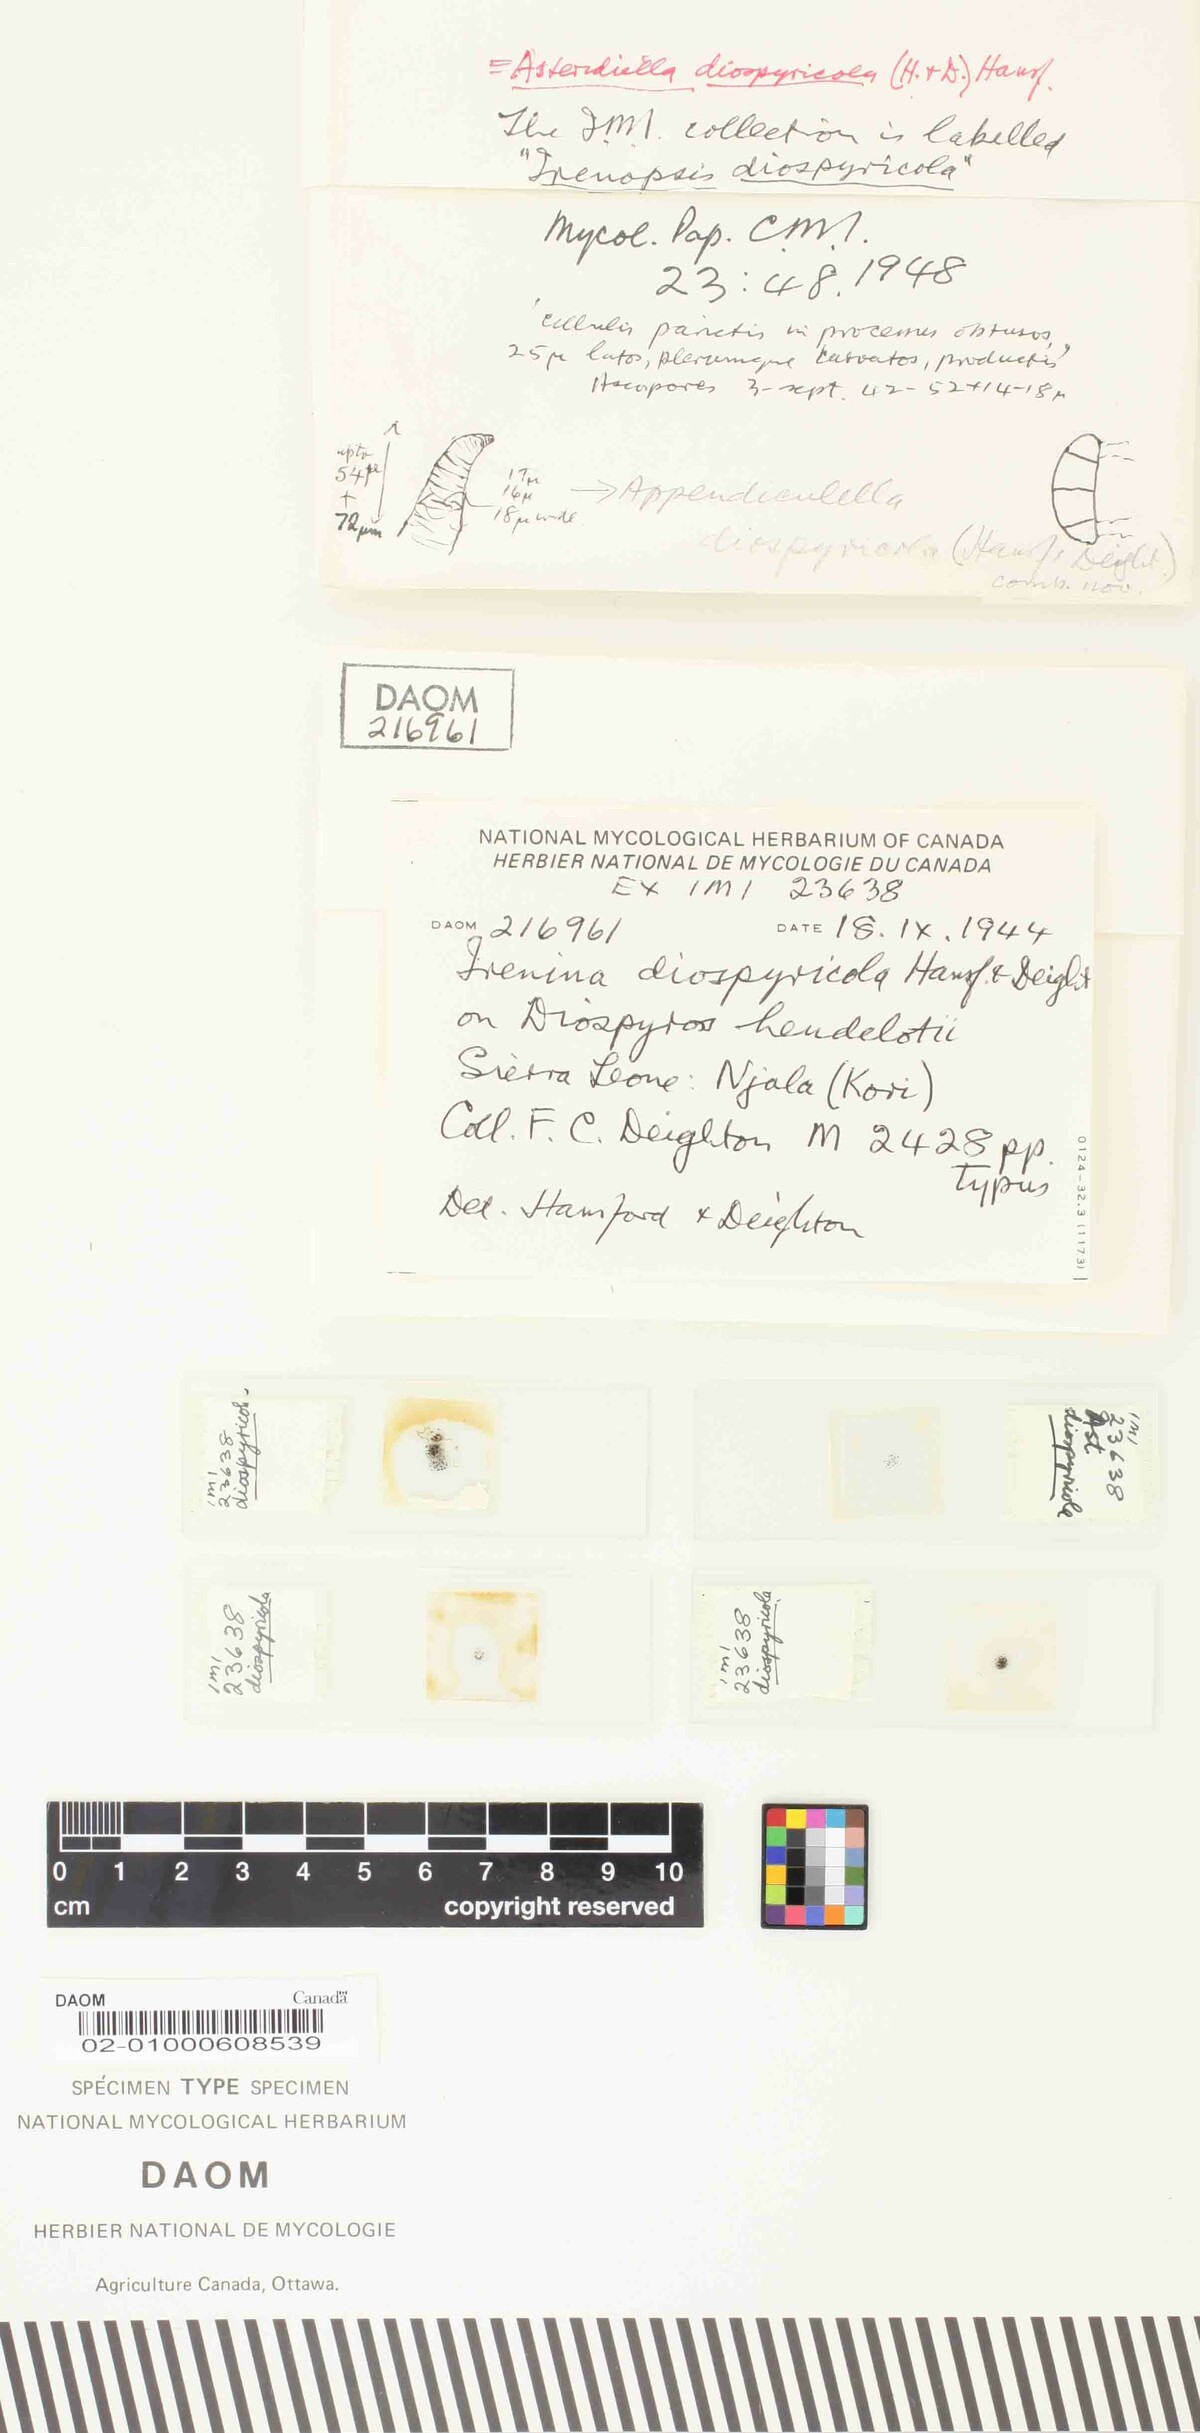 = Asteridiella diospyricola (H. + D.) Hansf.
The I.M.I. collection is labelled
"Irenopsis diospyricola"
Mycol. Pap. C.M.I.
23:48.1948
'cellulis parietis in processus obtusos,
25µ latos, plerumque curvatos, productis'
Ascospores 3-sept. 42-52×14-18µ
upto
54µ
+
72µm
17µ
16µ
18µ wide
→ Appendiculella
diospyricola (Hansf. & Deight.)
comb. nov.
DAOM
216961
NATIONAL MYCOLOGICAL HERBARIUM OF CANADA
HERBIER NATIONAL DE MYCOLOGIE DU CANADA
EX IMI 23638
DAOM 216961 DATE 18.IX.1944
Irenina diospyricola Hansf. & Deight
on Diospyros heudelotii
Sierra Leone: Njala (Kori)
Coll. F. C. Deighton M 2428 pp.
Typus
Det. Hansford & Deighton
0124-32.3 (1173)
IMI
23638
diospyricola
IMI
23638
Ast.
diospyricola
IMI
23638
diospyricola
IMI
23638
diospyricola
0 1 2 3 4 5 6 7 8 9 10
cm copyright reserved
DAOM Canada
02-01000608539
SPÉCIMEN TYPE SPECIMEN
NATIONAL MYCOLOGICAL HERBARIUM
DAOM
HERBIER NATIONAL DE MYCOLOGIE
Agriculture Canada, Ottawa.